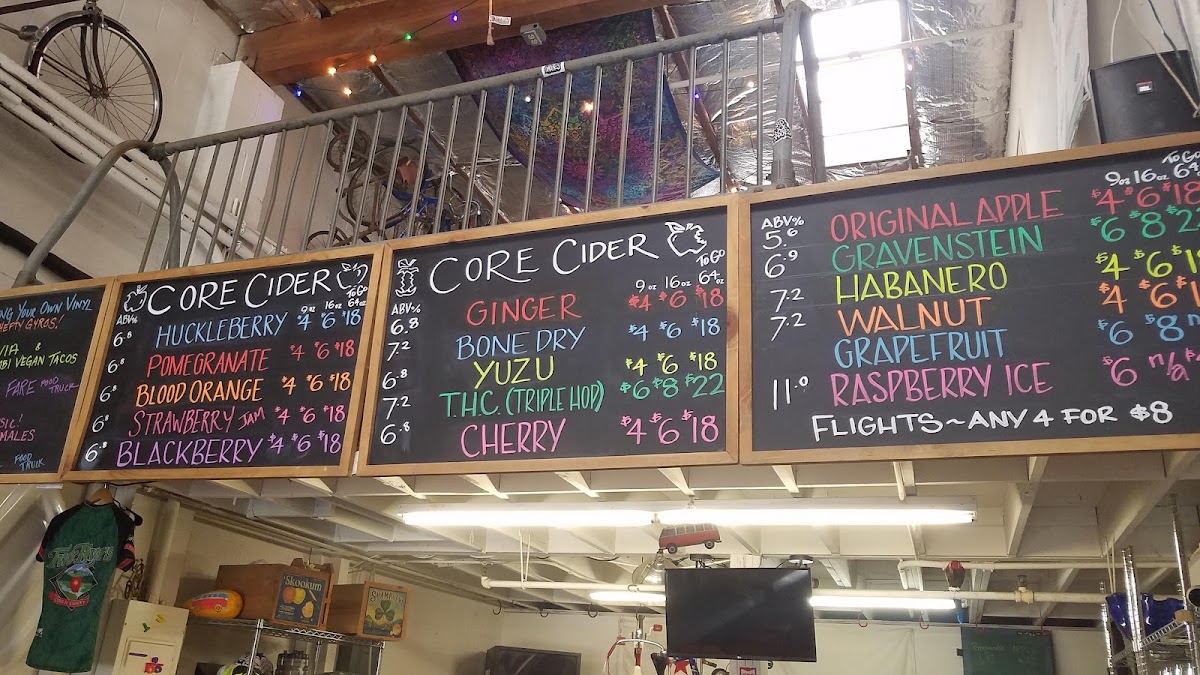 NG YOUR OWN VINYL
HEFTY GYROS!
VIA &
BI VEGAN TACOS
FARE FOOD TRUCK
SIC!
MALES
FOOD TRUCK
CORE CIDER
TO GO
ABV% 9oz 16oz 64oz
6.8 HUCKLEBERRY $4 $6 $18
POMEGRANATE $4 $6 $18
6.8 BLOOD ORANGE $4 $6 $18
6.8 STRAWBERRY JAM $4 $6 $18
6.8 BLACKBERRY $4 $6 $18
CORE CIDER
TO GO
ABV% 9oz 16oz 64oz
6.8 GINGER $4 $6 $18
7.2 BONE DRY $4 $6 $18
6.8 YUZU $4 $6 $18
7.2 T.H.C. (TRIPLE HOP) $6 $8 $22
6.8 CHERRY $4 $6 $18
TO GO
ABV% 9oz 16oz 64
5.6 ORIGINAL APPLE $4 $6 $18
6.9 GRAVENSTEIN $6 $8 $22
7.2 HABANERO $4 $6 $1
7.2 WALNUT $4 $6 $1
GRAPEFRUIT $6 $8
11.0 RASPBERRY ICE $6 n/a
FLIGHTS~ANY 4 FOR $8
SKOOKUM
SHAMROCK